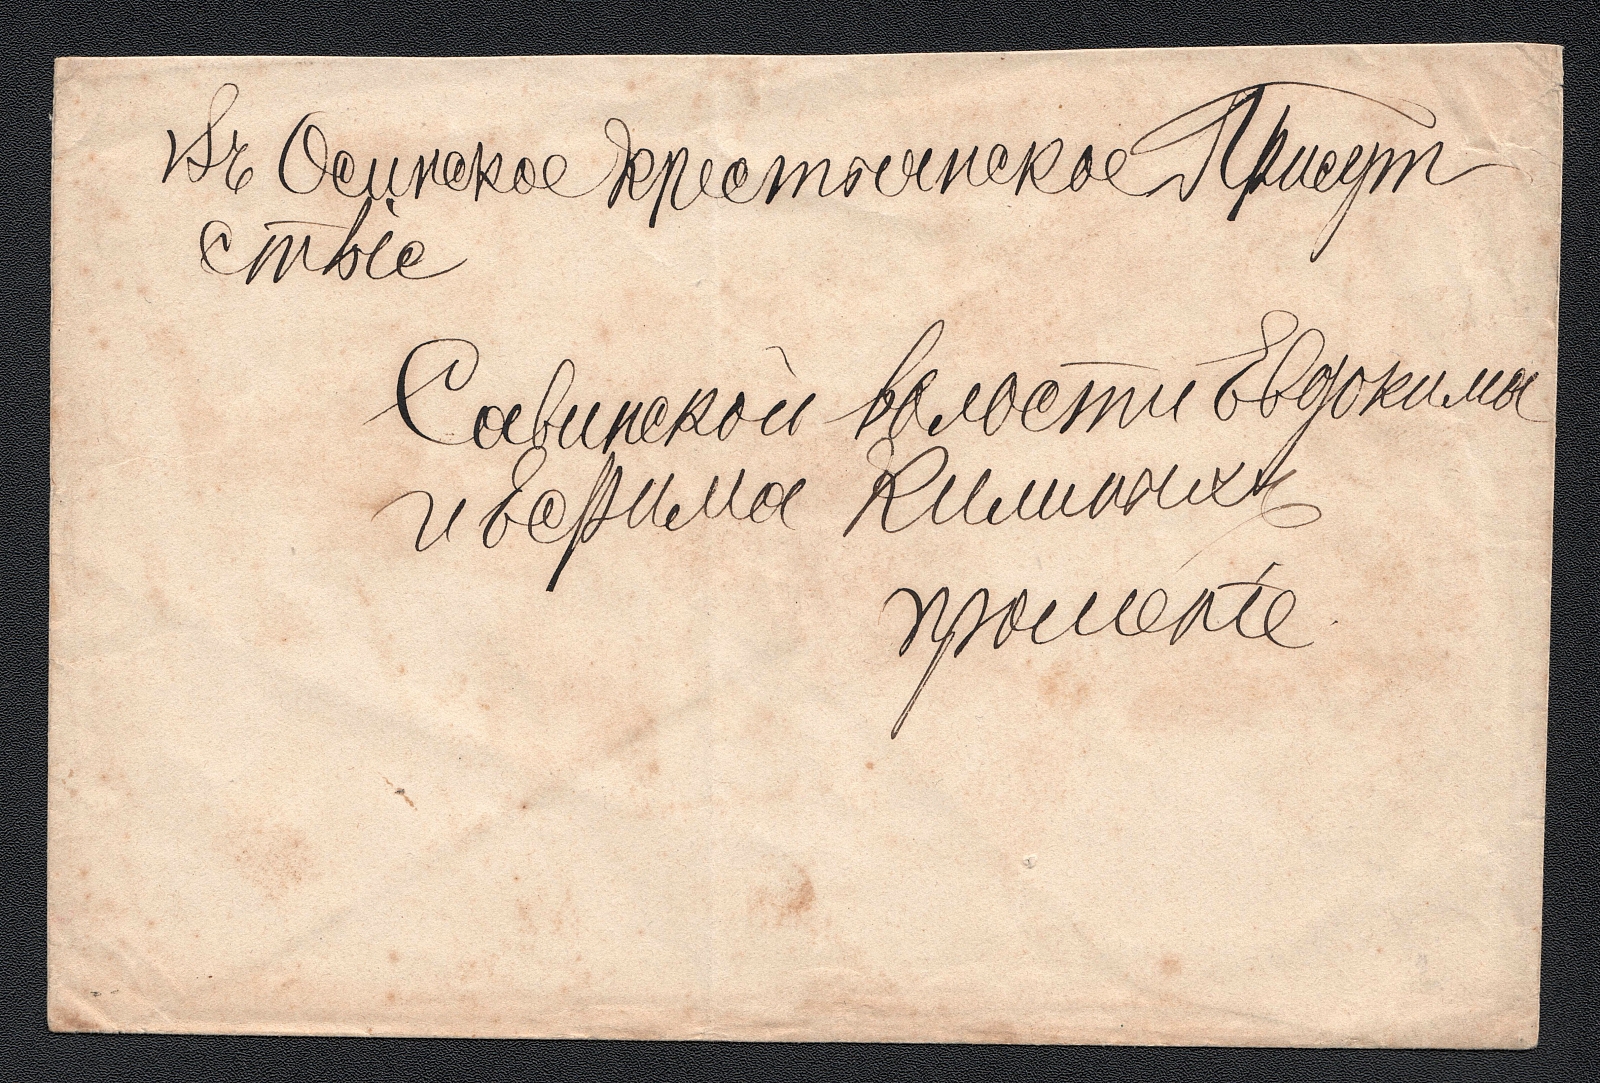 Въ Осинское крестьянское Присут
ствіе
Савинской волости Евдокима
и Ефима Килиныхъ
прошеніе